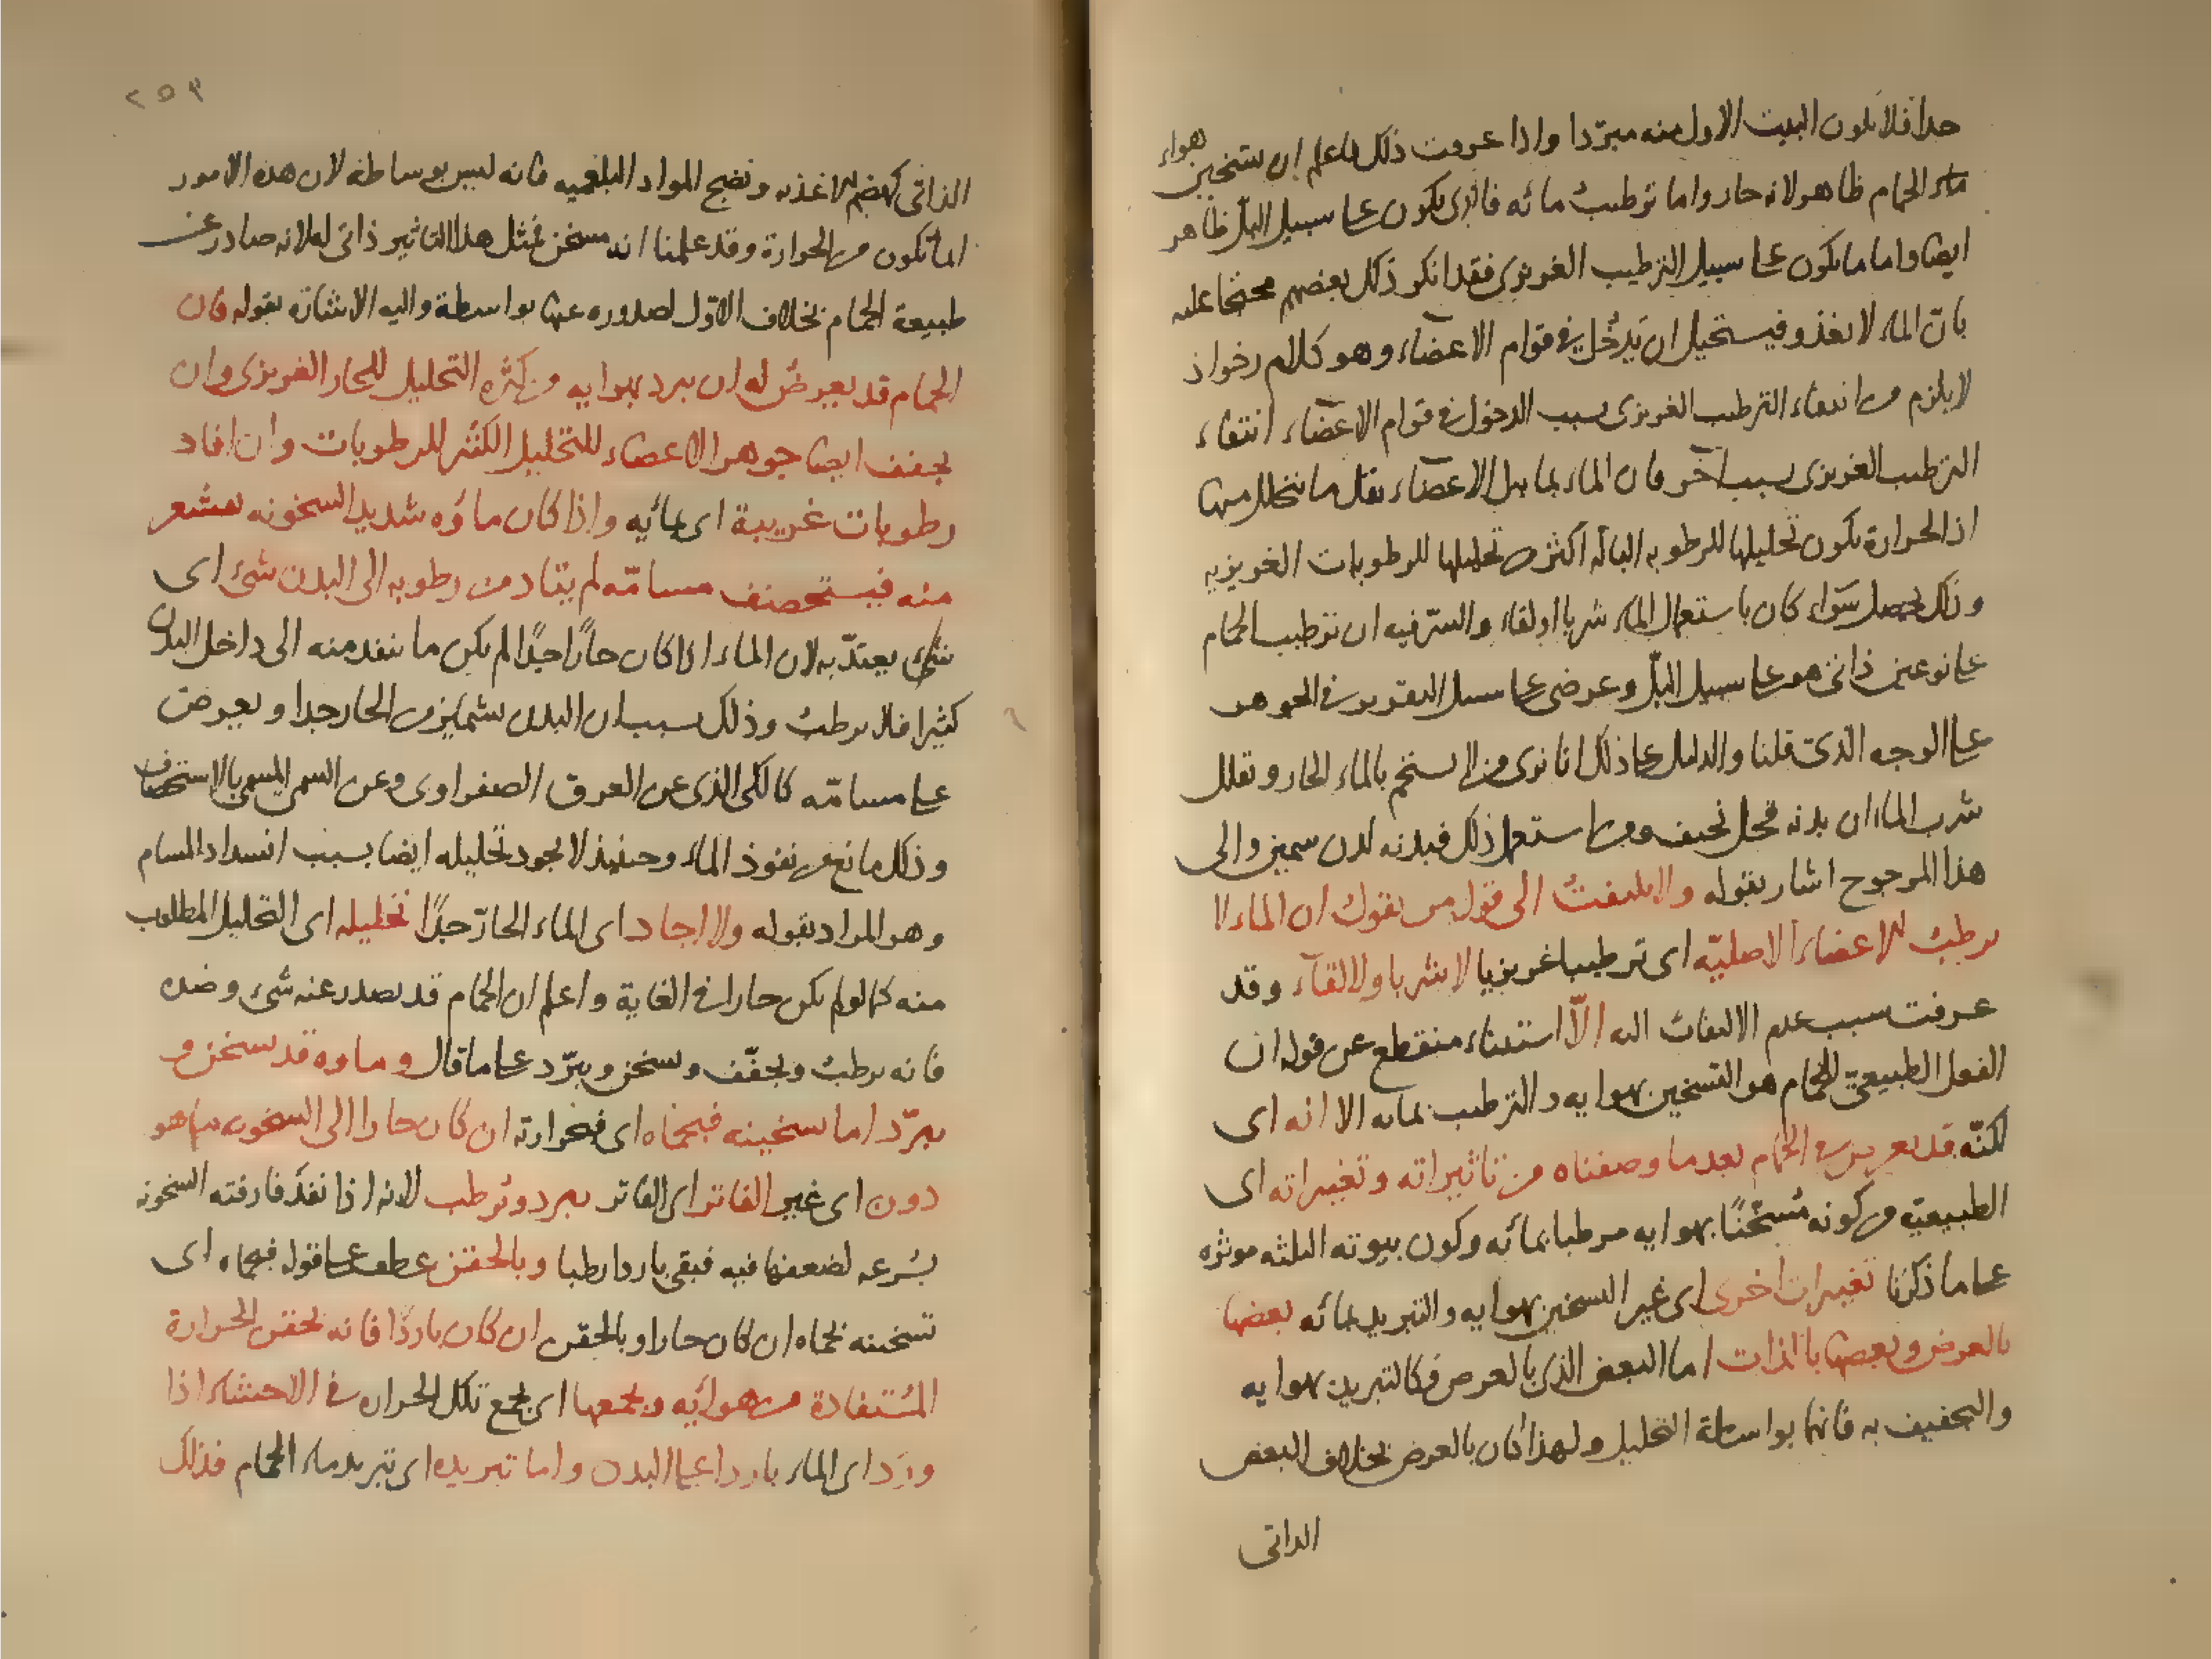 جدا فلا يكون البيت الاول منه مبرّدا واذا عرفت ذلك فاعلم ان تسخين هواء
ماء الحمام ظاهر لانه حار واما ترطيبُ مائه فالذى يكون على سبيل البلّ ظاهر
ايضا واما ما يكون على سبيل الترطيب الغريزى فقد انكر ذلك بعضهم محتجا عليه
بانّ الماء لا يغذو فيستحيل ان يَدخُل فى قوام الاعضاء وهو كلام رخو اذ
لا يلزم من انتفاء الترطيب الغريزى بسبب الدخول فى قوام الاعضاء انتفاء
الترطيب الغريزى بسبب آخر فان الماء بما يبل الاعضاء يقل ما يتحلل منها
اذ الحرارة يكون تحليلها للرطوبه البالّه اكثر من تحليلها للرطوبات الغريزيه
وذلك يحصل سَواء كان باستعمال الماء شربا او لقاء والسّر فيه ان ترطيب الحمام
على نوعين ذاتى هو على سبيل البلّ وعرضى على سبيل التقرير فى الجوهر
على الوجه الذى قلنا والدليل على ذلك انا نرى من لا يستحم بالماء الحار ويقلل
شرب الماء ان بدنه قحل نحيف ومن استعمل ذلك فبدنه لدن سمين والى
هذا المرجوح اشار بقوله ولا يلتفتُ الى قول من يقول ان الماء لا
يرطبُ الاعضاء الاصليّه اى ترطيبا غريزيا لا شربا ولا لقآء وقد
عرفت سبب عدم الالتفات اليه الاّ استثناء منقطع عن قوله ان
الفعل الطبيعىّ للحمام هو التسخين بهوايه والترطيب بمائه الا انه اى
لكنّه قد يعرض من الحمام بعدما وصفناه من تاثيراته وتغييراته اى
الطبيعية من كونه مُسخّنًا بهوايه مرطبا بمائه وكون بيوته الثلثه موثره
على ما ذكرنا تغييرات اخرى اى غير التسخين بهوايه والتبريد بمائه بعضها
بالعرض وبعضها بالذات اما البعض الذى بالعرض فكالتبريد بهوايه
والتجفيف به فانها بواسطة التحليل ولهذا كان بالعرض بخلاف البعض
الذاتى
٢٥٩
الذاتى كهضم الاغذيه ونضج المواد البلغميه فانه ليس بوساطة لان هذه الامور
انما تكون من الحرارة وقد علمنا انه مسخن فمثل هذا التاثير ذاتى له لانه صادر عن
طبيعة الحمام بخلاف الاوّل لصدوره عنها بواسطة واليه الاشارة بقوله فان
الحمام قد يعرضُ له ان يبرد بهوايه من كثرة التحليل للحار الغريزى وان
يجفف ايضا جوهر الاعضاء للتحليل الكثير للرطوبات وان افاد
رطوبات غريبة اى مائيه واذا كان ماؤه شديد السخونه يقشعر
منه فيستحصف مسامّه لم يتاد من رطوبه الى البدن شئ اى
شئ يعتدّ به لان الماء اذا كان حارًا جدًا لم يكن ما ينفد منه الى داخل البدن
كثيرا فلا يرطبُ وذلك بسبب ان البدن يشمايز من الحار جدا ويعرض
على مسامّه كالكى الذى عن العرق الصفراوى وعن السمى المسمى بالاستحصاف
وذلك مانع من نفوذ الماء وحينئذ لا يجود تحليله ايضا بسبب انسداد المسام
وهو المراد بقوله ولا اجاد اى الماء الحارّ جدًا تحليله اى التحليل المطلوب
منه كما لو لم يكن حارا فى الغاية واعلم ان الحمام قد يصدر عنه شئ وضده
فانه يرطبُ ويجفّف ويسخن ويبرّد على ما قال وماوه قد يسخن و
يبرّد اما تسخينه فبحماه اى فبحرارته ان كان حارا الى السخونه ما هو
دون اى غير الفاتر اى الفاتر يبرد ويرطب لانه اذا نفذ فارقته السخونه
بسُرعه لضعفها فيه فبقى باردا رطبا وبالحقن عطف على قوله فبحماه اى
تسخينه بحماه ان كان حارا وبالحقن ان كان باردًا فانه يحقن الحرارة
المُستفادة من هوائيه ويجمعها اى يجمع تلك الحراره فى الاحشاء اذا
ورَد اى الماء باردا على البدن واما تبريده اى تبريد ماء الحمام فذلك